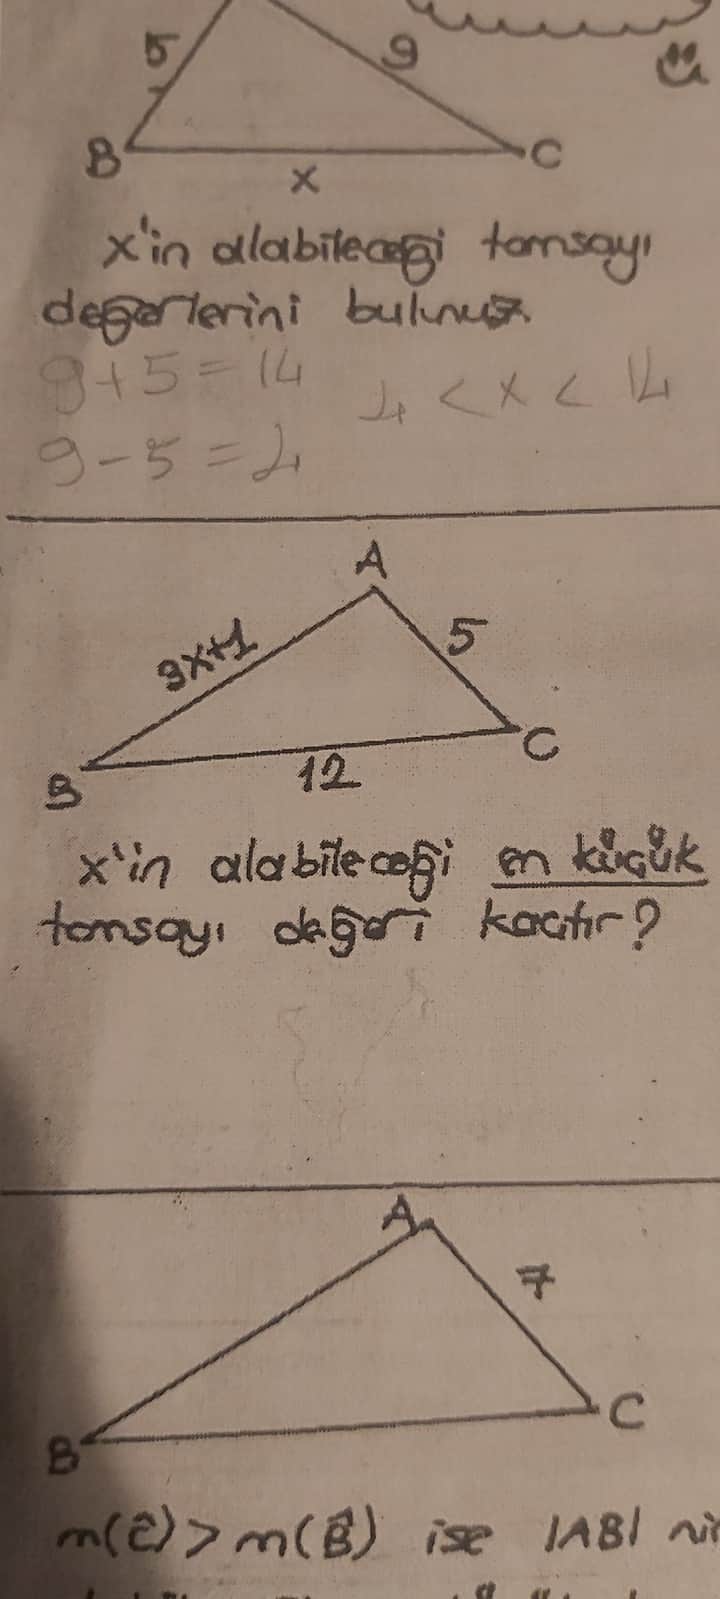 5
9
B
C
x
x'in alabileceği tamsayı
değerlerini bulunuz.
9+5=14
4 < x < 14
9-5=4
A
3x+1
5
B
12
C
x'in alabileceği en küçük
tamsayı değeri kaçtır?
A
7
B
C
m(Ĉ) > m(B̂) ise |AB| nin